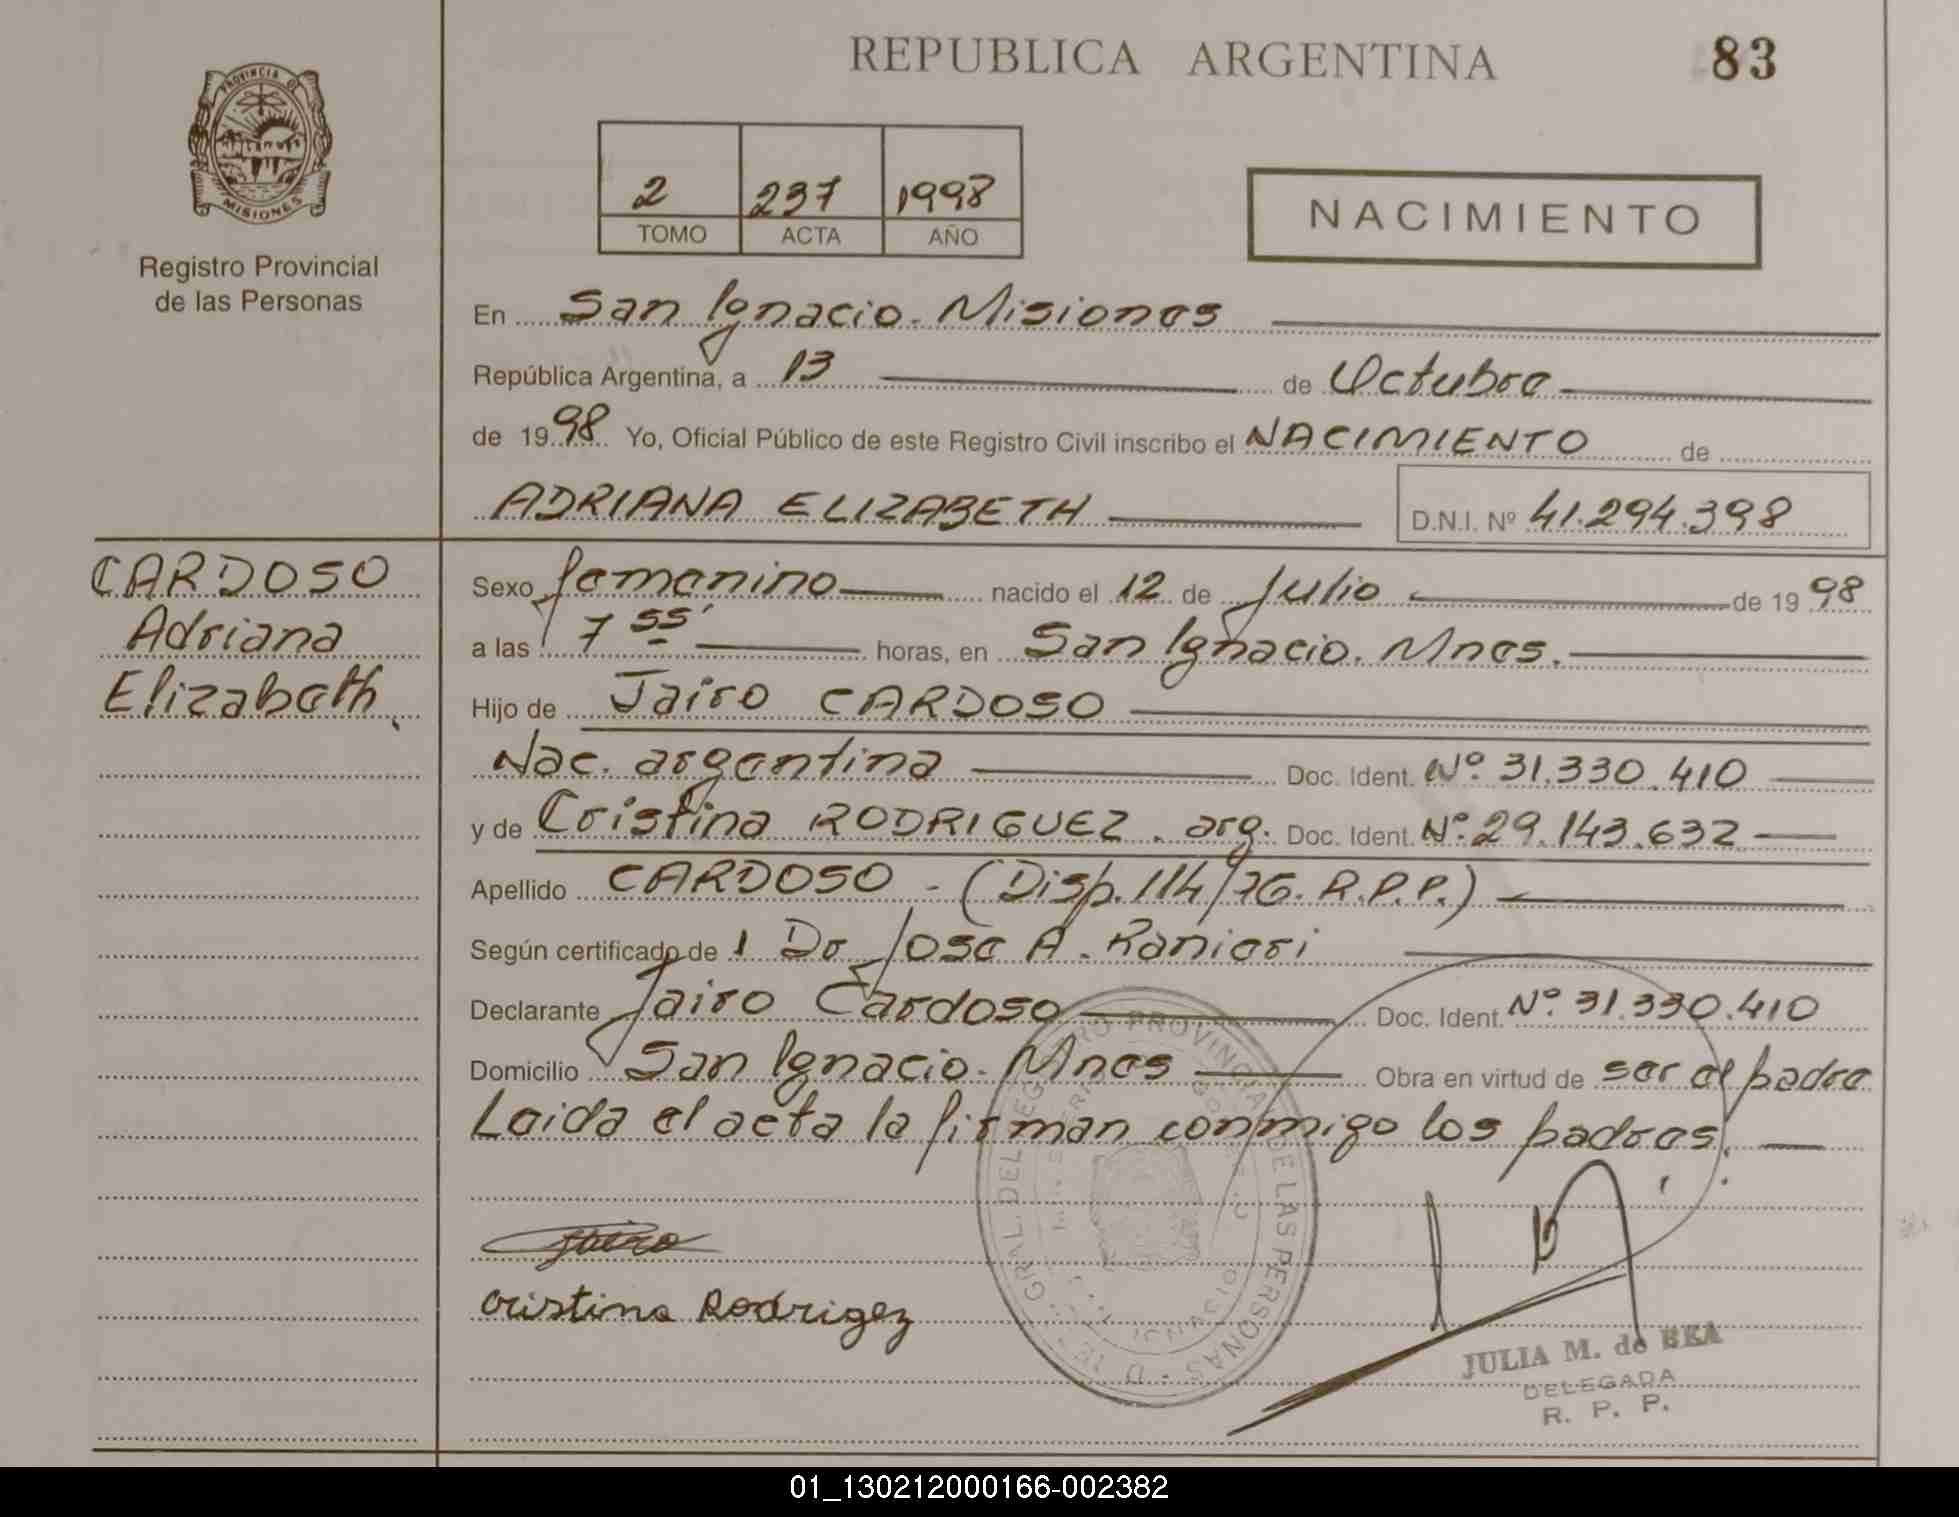 REPUBLICA ARGENTINA
83
PROVINCIA DE
MISIONES
Registro Provincial
de las Personas
2 237 1998
TOMO ACTA AÑO
NACIMIENTO
En San Ignacio. Misiones
República Argentina, a 13 de Octubre
de 1998 Yo, Oficial Público de este Registro Civil inscribo el NACIMIENTO de
ADRIANA ELIZABETH D.N.I. Nº 41.294.398
CARDOSO
Adriana
Elizabeth.
Sexo femenino nacido el 12 de Julio de 1998
a las 7 55' horas, en San Ignacio. Mnes.
Hijo de Jairo CARDOSO
Nac. argentina Doc. Ident. Nº. 31.330.410
y de Cristina RODRIGUEZ. arg. Doc. Ident. Nº. 29.143.632
Apellido CARDOSO - (Disp. 114/76. R.P.P.)
Según certificado de 1 Dr Jose A. Ranieri
Declarante Jairo Cardoso Doc. Ident. Nº. 31.330.410
Domicilio San Ignacio. Mnes Obra en virtud de ser el padre
Leida el acta la firman conmigo los padres.
Jairo
Cristina Rodrigez
JULIA M. de BEA
DELEGADA
R. P. P.
01_130212000166-002382